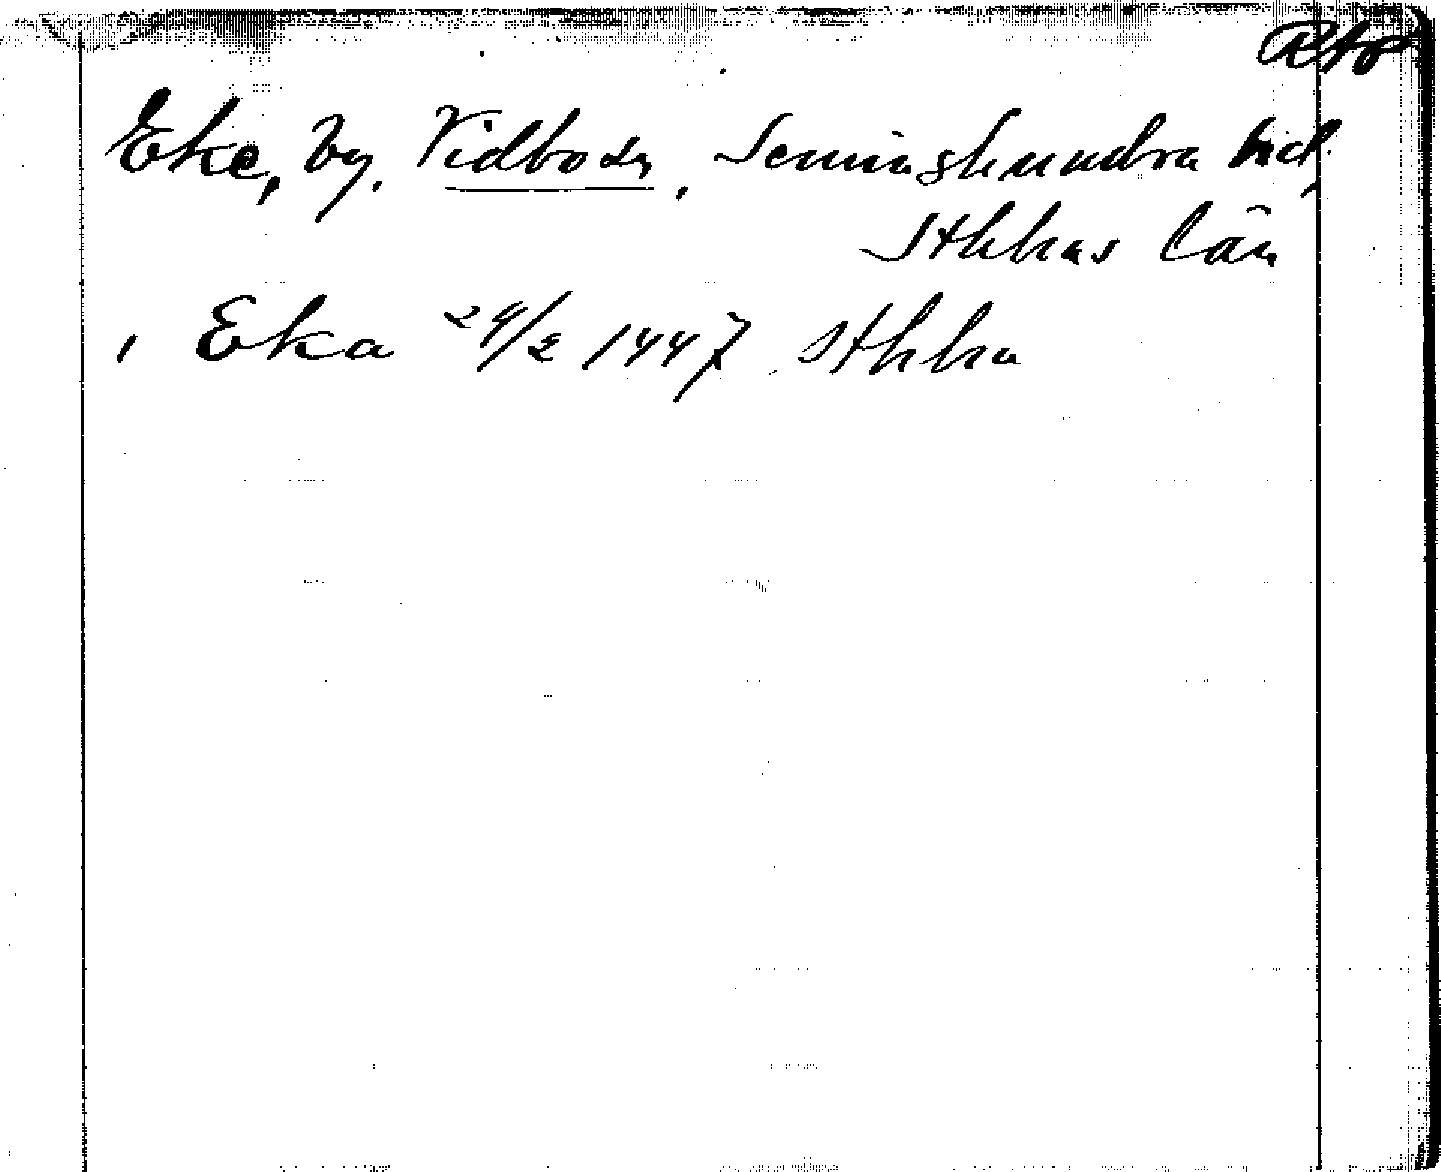 Eke, by, Vidbo sn, Seminghundra hd,
Sthlms län
, Eka 24/2 1447 Sthlm